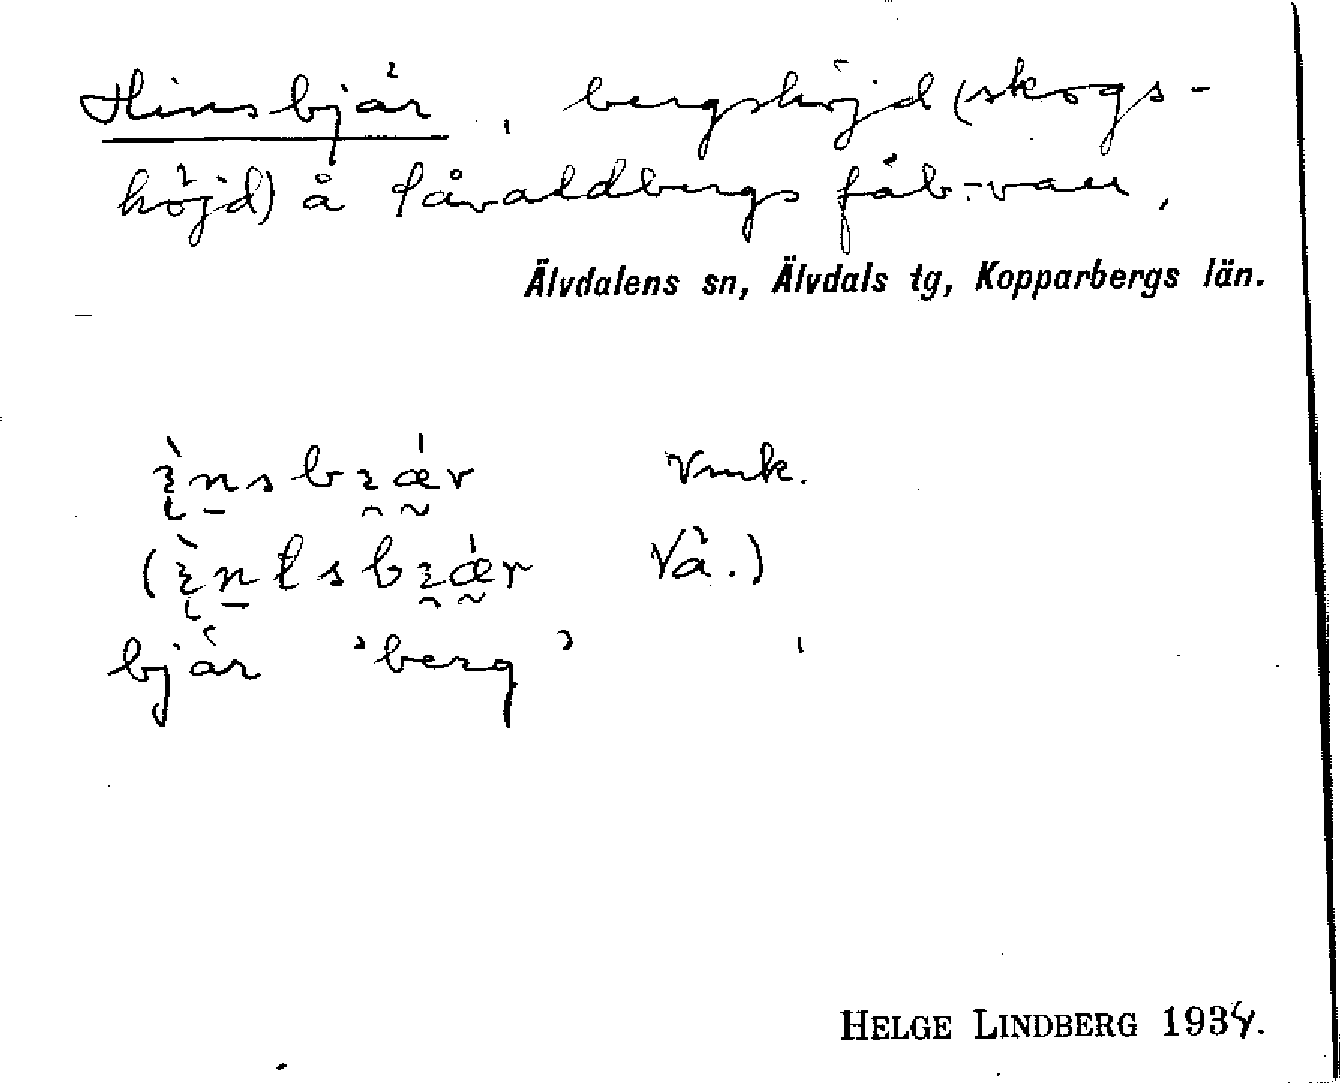 Hinsbjär, bergshöjd (skogs-
höjd) å Påvaldbergs fäb:vall,
Älvdalens sn, Älvdals tg, Kopparbergs län.
Vmk.
Vå.)
bjär 'berg'
HELGE LINDBERG 1934.